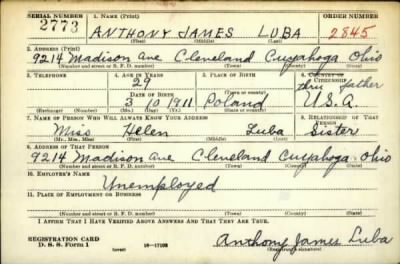 SERIAL NUMBER 1. NAME (Print) ORDER NUMBER
2773 ANTHONY JAMES LUBA 2845
(First) (Middle) (Last)
2. ADDRESS (Print)
9214 Madison Ave Cleveland Cuyahoga Ohio
(Number and street or R. F. D. number) (Town) (County) (State)
3. TELEPHONE 4. AGE IN YEARS 5. PLACE OF BIRTH 6. COUNTRY OF CITIZENSHIP
29 thru father
DATE OF BIRTH Poland U.S.A.
3 10 1911
(Mo.) (Day) (Yr.) (State or county)
7. NAME OF PERSON WHO WILL ALWAYS KNOW YOUR ADDRESS 8. RELATIONSHIP OF THAT PERSON
Miss Helen Luba Sister
(Mr., Mrs., Miss) (First) (Middle) (Last)
9. ADDRESS OF THAT PERSON
9214 Madison Ave Cleveland Cuyahoga Ohio
(Number and street or R. F. D. number) (Town) (County) (State)
10. EMPLOYER'S NAME
Unemployed
11. PLACE OF EMPLOYMENT OR BUSINESS
(Number and street or R. F. D. number) (Town) (County) (State)
I AFFIRM THAT I HAVE VERIFIED ABOVE ANSWERS AND THAT THEY ARE TRUE.
REGISTRATION CARD
D. S. S. Form 1 (over) 16—17105 Anthony James Luba